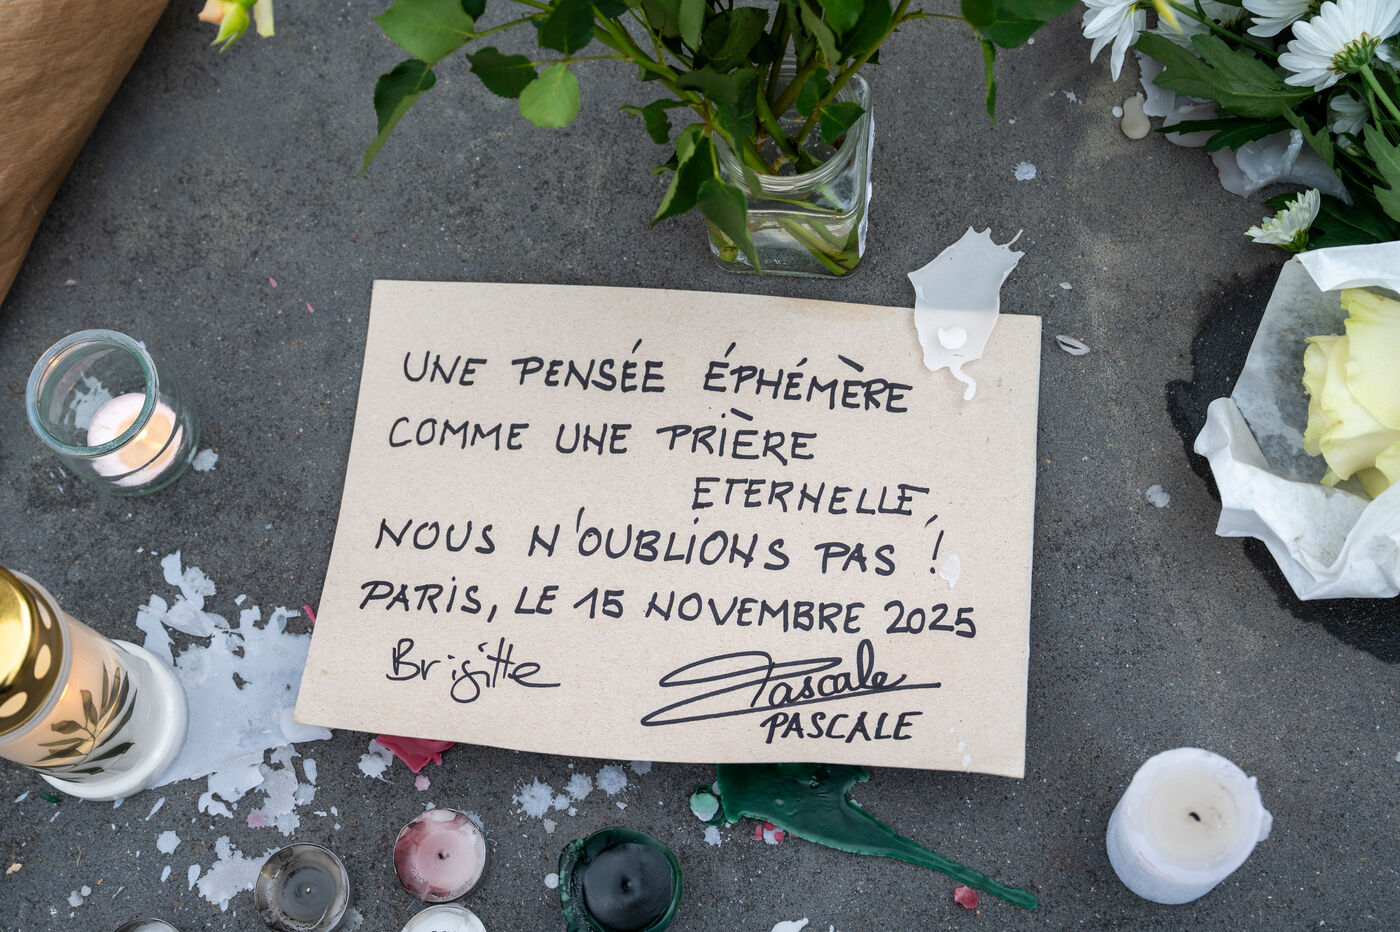 UNE PENSÉE ÉPHÉMÈRE
COMME UNE PRIÈRE
ETERNELLE,
NOUS N'OUBLIONS PAS !
PARIS, LE 15 NOVEMBRE 2025
Brigitte
Pascale
PASCALE